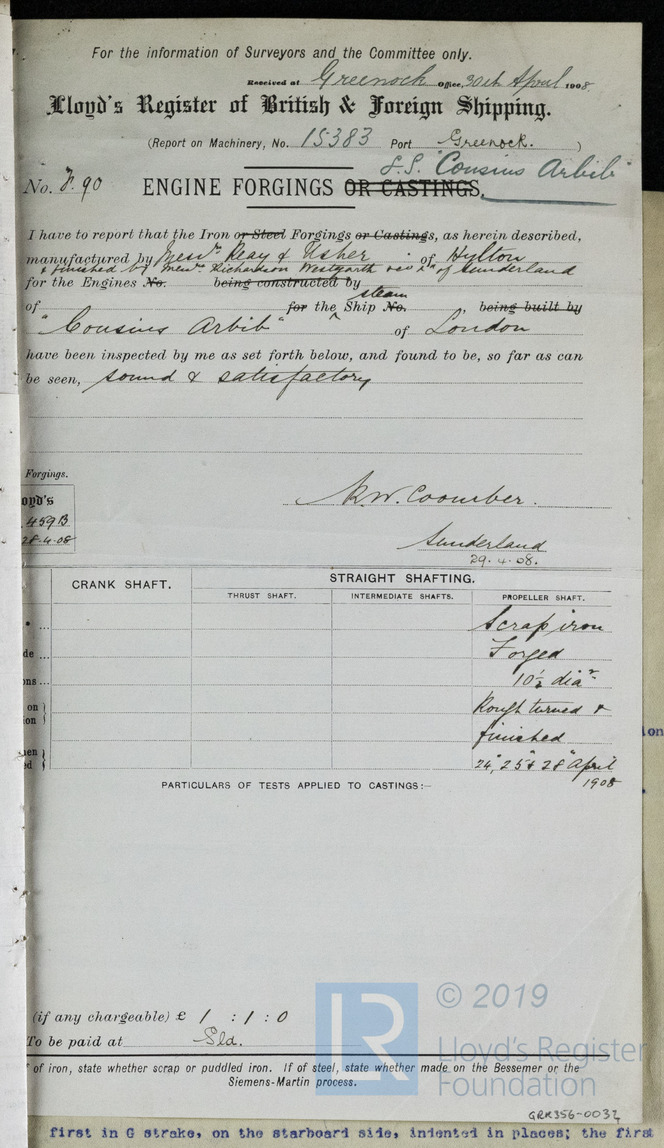 For the information of Surveyors and the Committee only.
Received at Greenock Office, 30th April 1908.
Lloyd's Register of British & Foreign Shipping.
(Report on Machinery, No. 15383 Port Greenock. )
S.S. "Cousins Arbib"
No. F. 90 ENGINE FORGINGS OR CASTINGS,
I have to report that the Iron or Steel Forgings or Castings, as herein described,
manufactured by Messrs Reay & Usher of Hylton
& finished by Messrs Richardson Westgarth of Sunderland
for the Engines No. being constructed by
of for the steam Ship No. , being built by
"Cousins Arbib" of London
have been inspected by me as set forth below, and found to be, so far as can
be seen, sound & satisfactory
Forgings.
oyd's
459B
28-4-08
R.W. Coomber.
Sunderland
29.4.08.
CRANK SHAFT. STRAIGHT SHAFTING.
THRUST SHAFT. INTERMEDIATE SHAFTS. PROPELLER SHAFT.
... Scrap iron
de ... Forged
ns ... 10½ diar
on } Rough turned &
ion } finished
en }
d } 24", 25" & 28" April
1908
PARTICULARS OF TESTS APPLIED TO CASTINGS:—
(if any chargeable) £ 1 : 1 : 0
To be paid at Sld.
of iron, state whether scrap or puddled iron. If of steel, state whether made on the Bessemer or the
Siemens-Martin process.
LR
© 2019
Lloyd's Register
Foundation
GRK356-0032
ion
first in G strake, on the starboard side, indented in places; the first